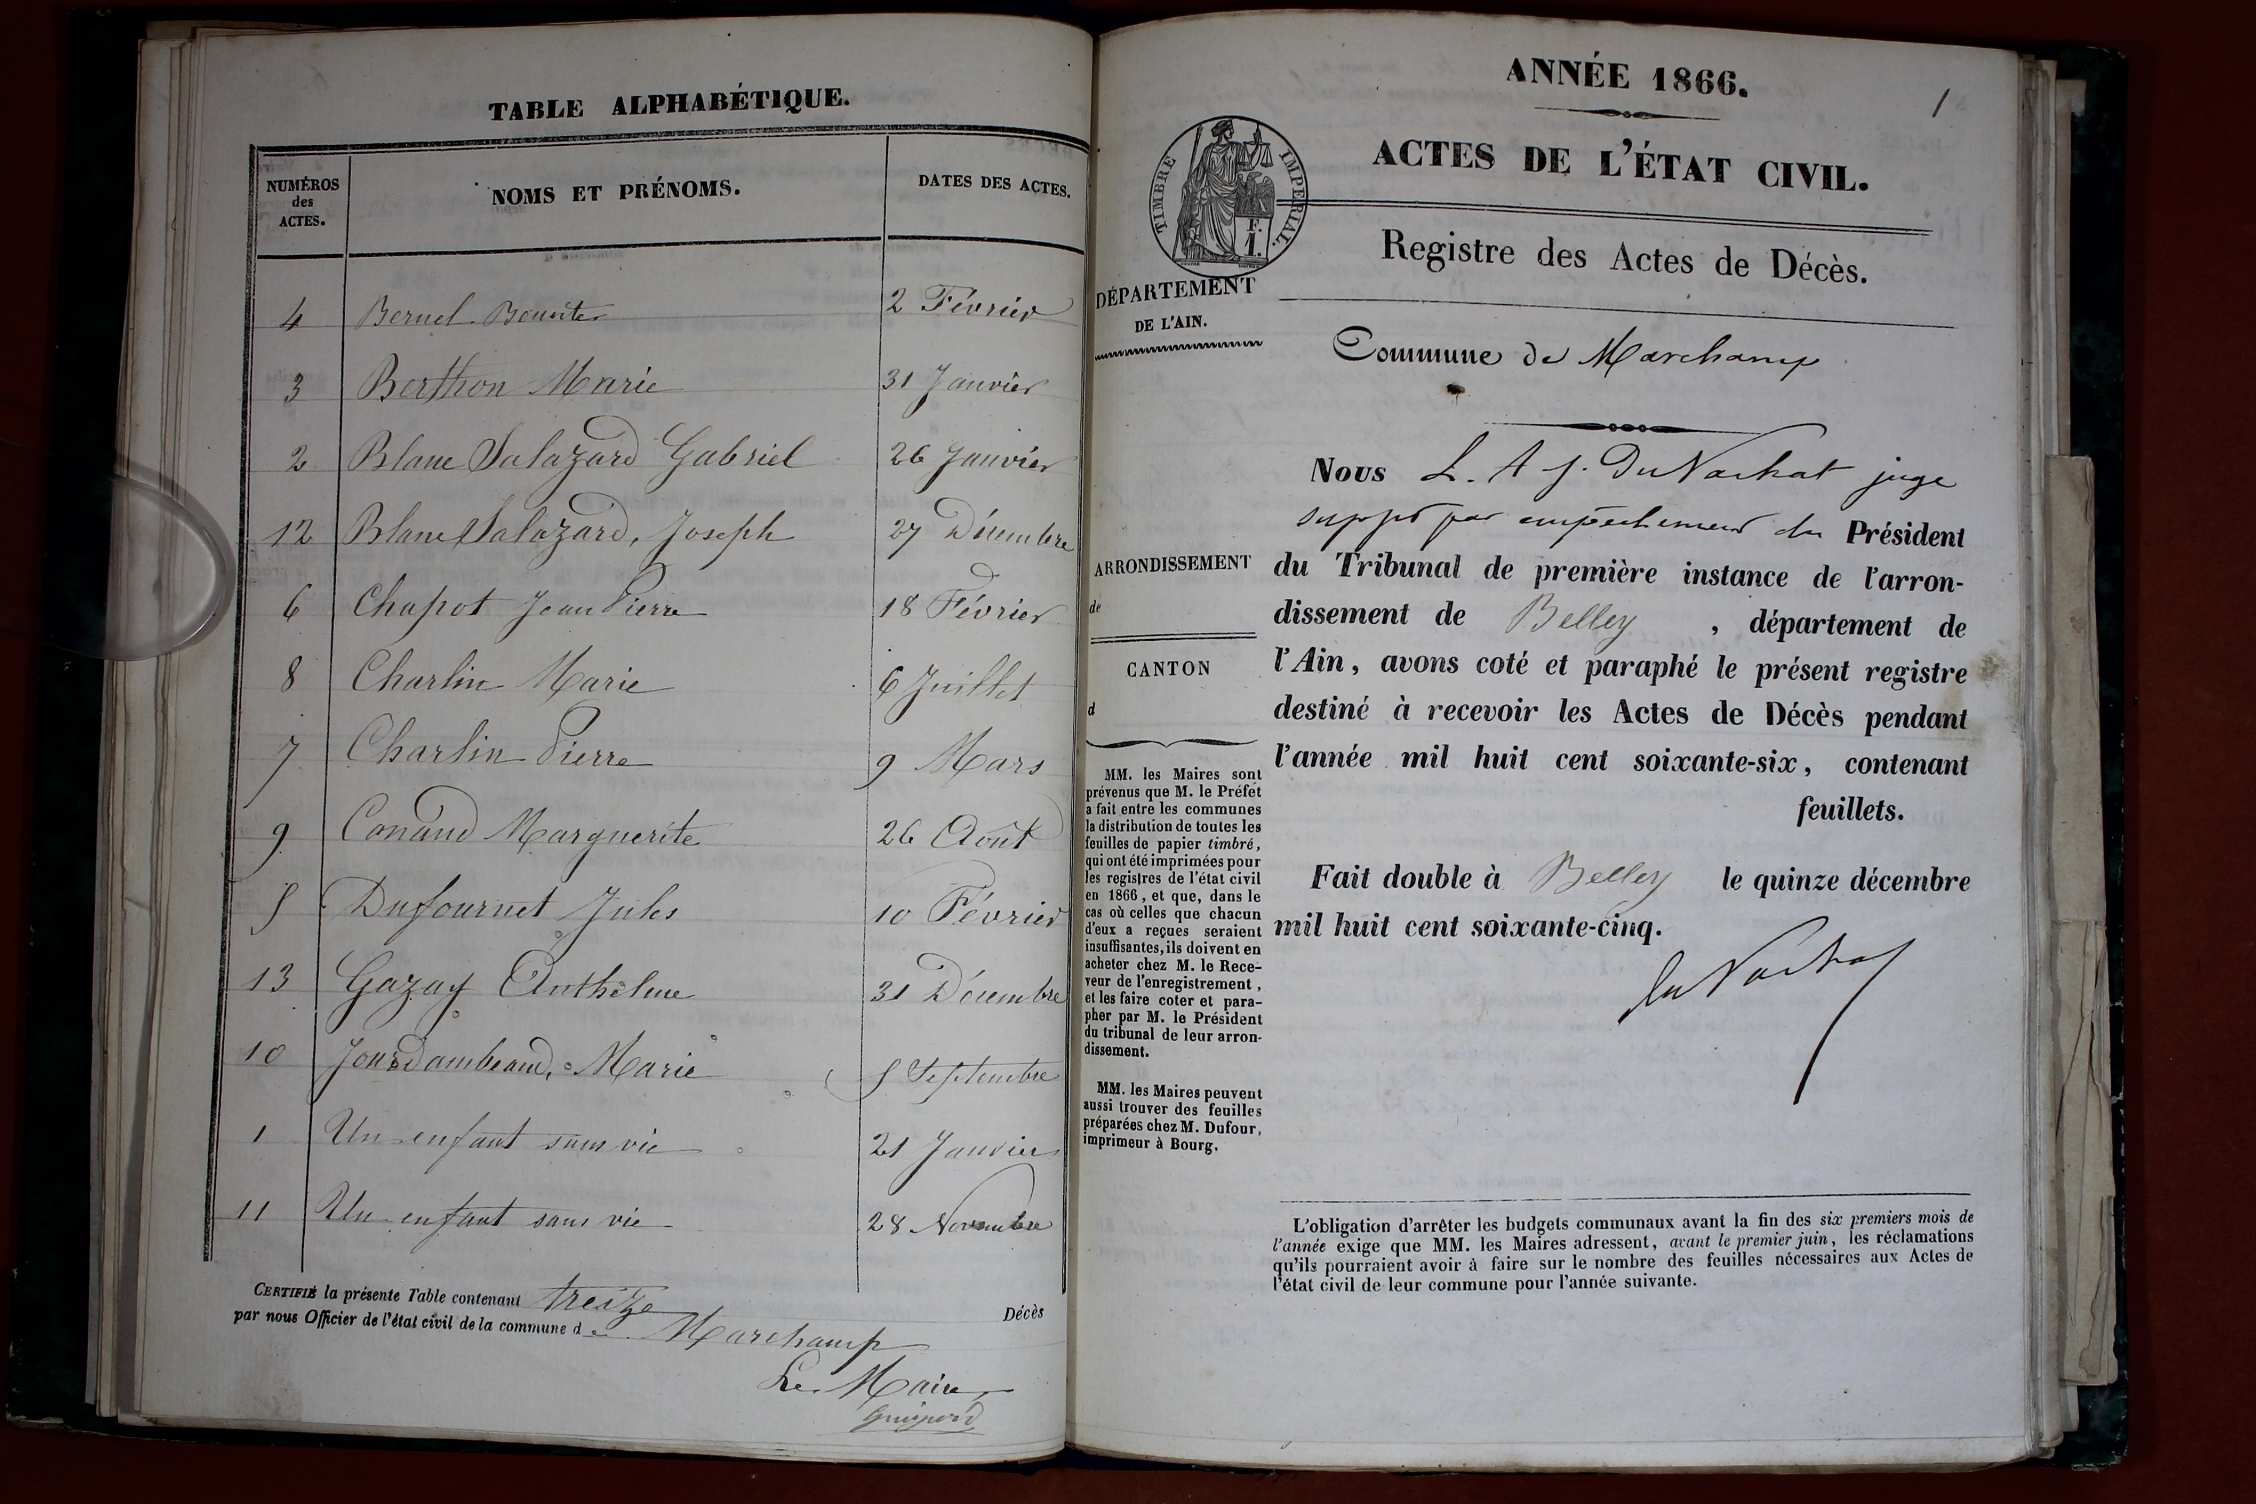 TABLE ALPHABÉTIQUE.
NUMÉROS des ACTES.
NOMS ET PRÉNOMS.
DATES DES ACTES.
4 Bernel Benoite 2 Février
3 Berthon Marie 31 Janvier
2 Blanc Salazard Gabriel 26 Janvier
12 Blanc Salazard, Joseph 27 Décembre
6 Chapot Jean Pierre 18 Février
8 Charlin Marie 6 Juillet
7 Charlin Pierre 9 Mars
9 Conand Marguerite 26 Août
5 Dufournet Jules 10 Février
13 Gazay Anthelme 31 Décembre
10 Jourdambeaud, Marie 5 Septembre
1 Un enfant sans vie 21 Janvier
11 Un enfant sans vie 28 Novembre
CERTIFIÉ la présente Table contenant treize Décès
par nous Officier de l'état civil de la commune de Marchamp
Le Maire
ANNÉE 1866.
1
ACTES DE L'ÉTAT CIVIL.
TIMBRE IMPERIAL.
F.
1.
Registre des Actes de Décès.
DÉPARTEMENT
DE L'AIN.
Commune de Marchamp
Nous L. A J. Du Nachat juge
supp par empêchement du Président
du Tribunal de première instance de l'arron-
dissement de Belley , département de
l'Ain, avons coté et paraphé le présent registre
destiné à recevoir les Actes de Décès pendant
l'année mil huit cent soixante-six, contenant
feuillets.
Fait double à Belley le quinze décembre
mil huit cent soixante-cinq.
du Nachat
ARRONDISSEMENT
de
CANTON
d
MM. les Maires sont
prévenus que M. le Préfet
a fait entre les communes
la distribution de toutes les
feuilles de papier timbré,
qui ont été imprimées pour
les registres de l'état civil
en 1866, et que, dans le
cas où celles que chacun
d'eux a reçues seraient
insuffisantes, ils doivent en
acheter chez M. le Rece-
veur de l'enregistrement,
et les faire coter et para-
pher par M. le Président
du tribunal de leur arron-
dissement.
MM. les Maires peuvent
aussi trouver des feuilles
préparées chez M. Dufour,
imprimeur à Bourg.
L'obligation d'arrêter les budgets communaux avant la fin des six premiers mois de
l'année exige que MM. les Maires adressent, avant le premier juin, les réclamations
qu'ils pourraient avoir à faire sur le nombre des feuilles nécessaires aux Actes de
l'état civil de leur commune pour l'année suivante.